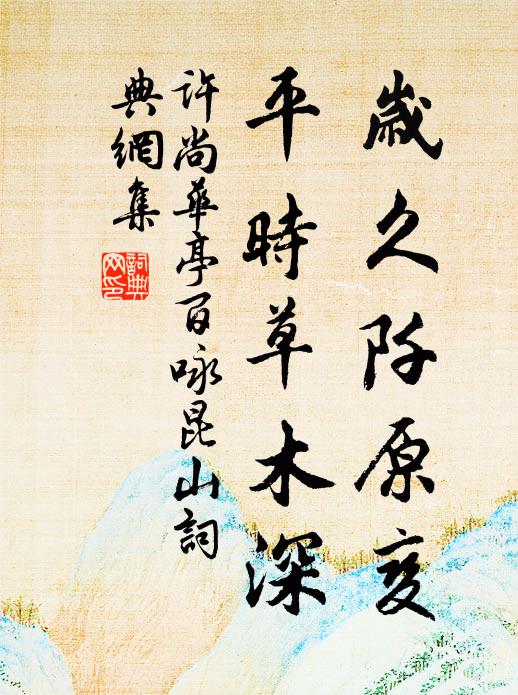 歲久阡原變
平時草木深
許尚華亭百咏昆山詞
典網集
詞典網印